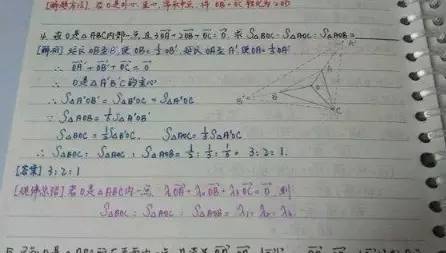 4. 若O是△ABC内部一点且3OA+2OB+OC=0, 求 S△BOC:S△AOC:S△AOB=
[解析] 延长OB至B', 使OB=½OB', 延长OA至A', 使OA=⅓OA'
∴ OA'+OB'+OC=0
∴ O是△A'B'C的重心
∴ S△A'OB'=S△B'OC=S△A'OC
∵ S△AOB=⅙S△A'OB'
S△BOC=½S△B'OC, S△AOC=⅓S△A'OC
∴ S△BOC:S△AOC:S△AOB=½:⅓:⅙=3:2:1.
[答案] 3:2:1
[规律总结] 若O是△ABC内一点, λ₁OA+λ₂OB+λ₃OC=0 则
S△BOC:S△AOC:S△AOB=λ₁:λ₂:λ₃